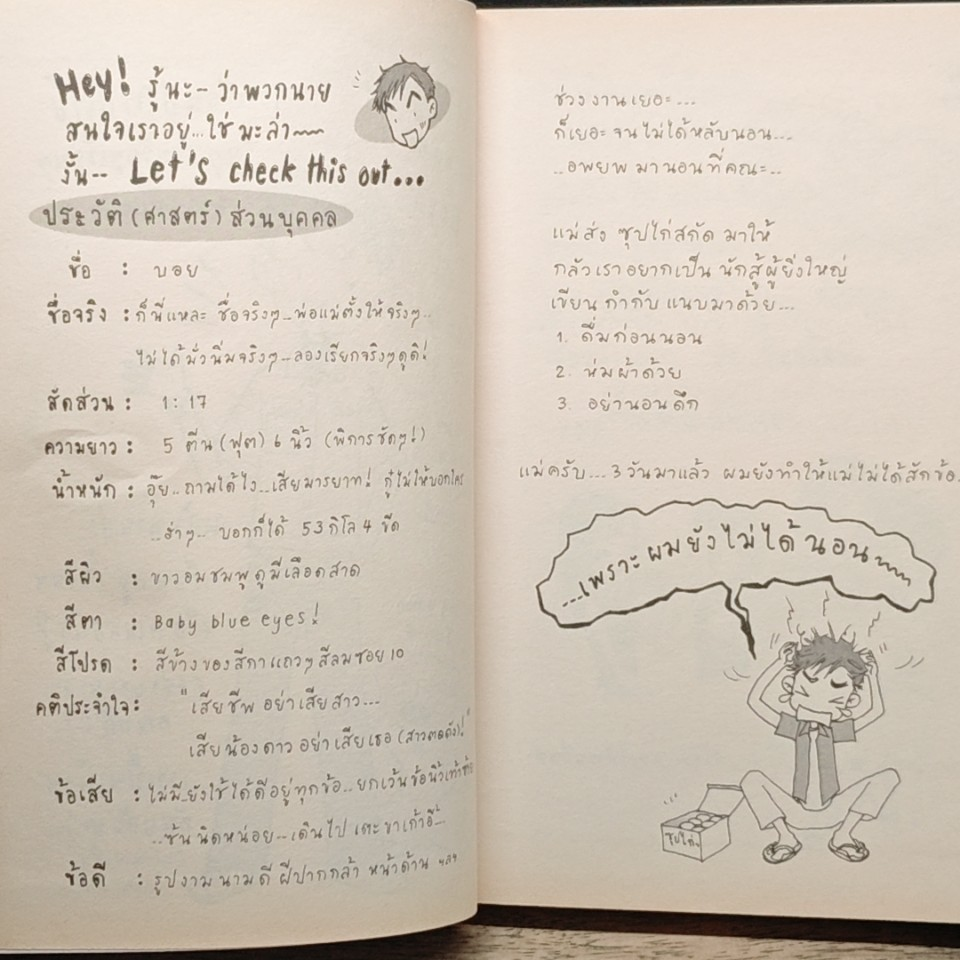 Hey! รู้นะ-- ว่าพวกนาย
สนใจเราอยู่...ใช่มะล่า~~
งั้น-- Let's check this out...
ประวัติ (ศาสตร์) ส่วนบุคคล
ชื่อ : บอย
ชื่อจริง : ก็นี่แหละ ชื่อจริงๆ...พ่อแม่ตั้งให้จริงๆ...
ไม่ได้มั่วนิ่มจริงๆ...ลองเรียกจริงๆดูดิ!
สัดส่วน : 1:17
ความยาว : 5 ตีน (ฟุต) 6 นิ้ว (พิการชัดๆ!)
น้ำหนัก : อุ๊ย...ถามได้ไง...เสียมารยาท! กู๋ไม่ให้บอกใคร
...ฮ่าๆ... บอกก็ได้ 53 กิโล 4 ขีด
สีผิว : ขาวอมชมพู ดูมีเลือดสาด
สีตา : Baby blue eyes!
สีโปรด : สีข้างของสีกาแถวๆ สีลมซอย 10
คติประจำใจ : "เสียชีพ อย่าเสียสาว...
เสียน้องดาว อย่าเสียเธอ (สาวตตดัง)!"
ข้อเสีย : ไม่มี..ยังใช้ได้ดีอยู่ทุกข้อ...ยกเว้นข้อนิ้วเท้า
...ซ้นนิดหน่อย...เดินไปเตะขาเก้าอี้...
ข้อดี : รูปงาม นามดี ฝีปากกล้า หน้าด้าน ฯลฯ
ช่วงงานเยอะ...
ก็เยอะจนไม่ได้หลับนอน...
..อพยพมานอนที่คณะ..
แม่ส่ง ซุปไก่สกัด มาให้
กลัวเราอยากเป็น นักสู้ผู้ยิ่งใหญ่
เขียนกำกับแนบมาด้วย...
1. ดื่มก่อนนอน
2. ห่มผ้าด้วย
3. อย่านอนดึก
แม่ครับ...3 วันมาแล้ว ผมยังทำให้แม่ไม่ได้สักข้อ
...เพราะผมยังไม่ได้นอน~~~
ซุปไก่